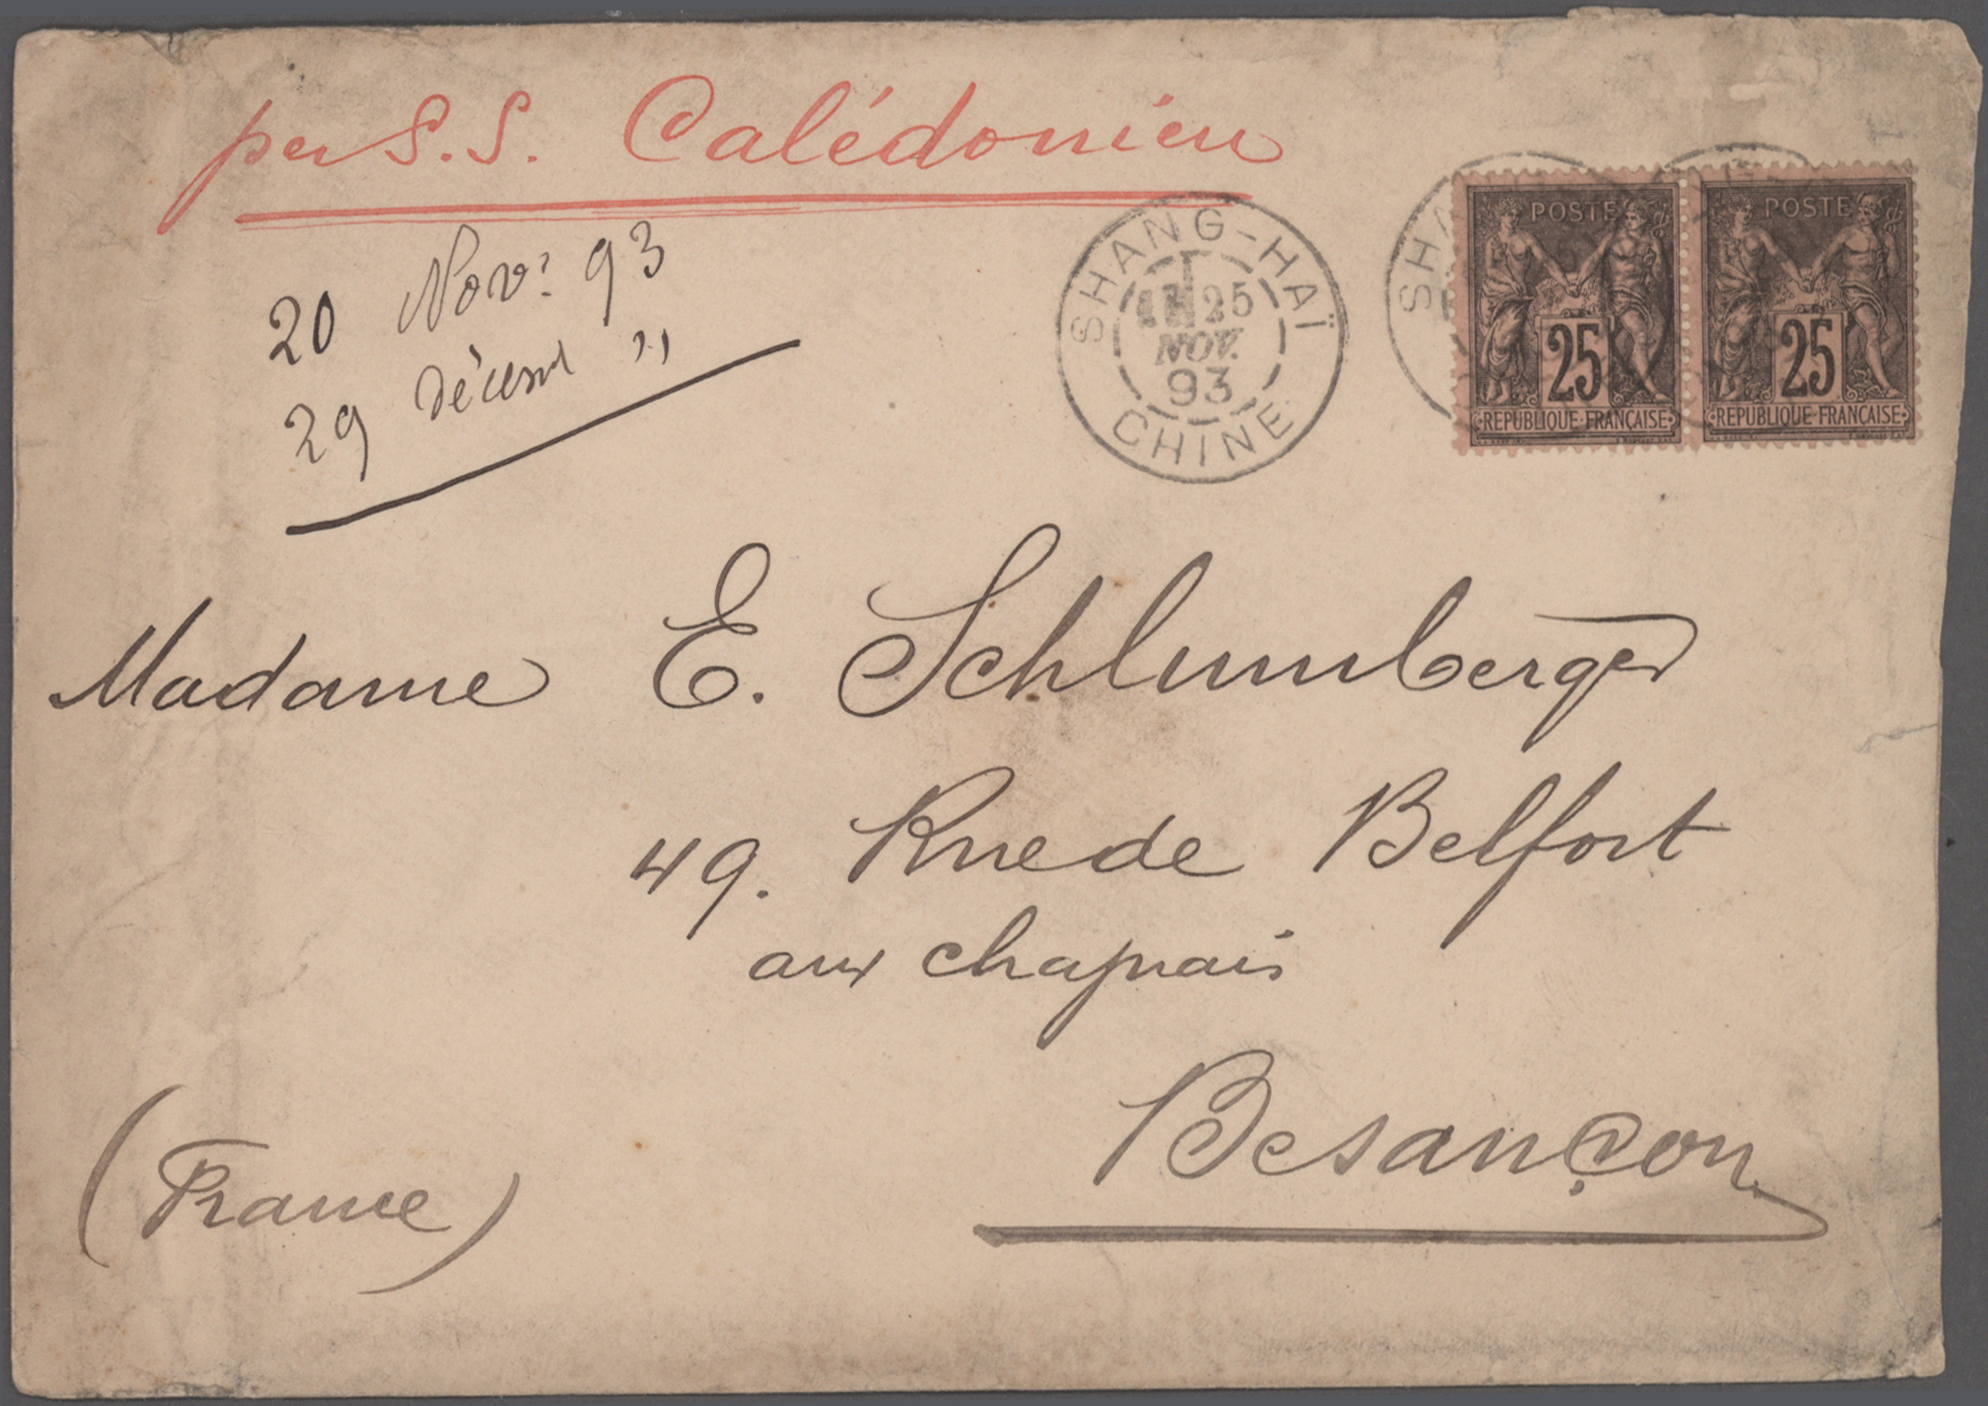 per S.S. Calédonien
20 Nov: 93
29 décem "
SHANG-HAÏ
25
NOV.
93
CHINE
SHA
POSTE
25
REPUBLIQUE FRANÇAISE
POSTE
25
REPUBLIQUE FRANÇAISE
Madame E. Schlumberger
49. Rue de Belfort
aux chaprais
Besançon
(France)